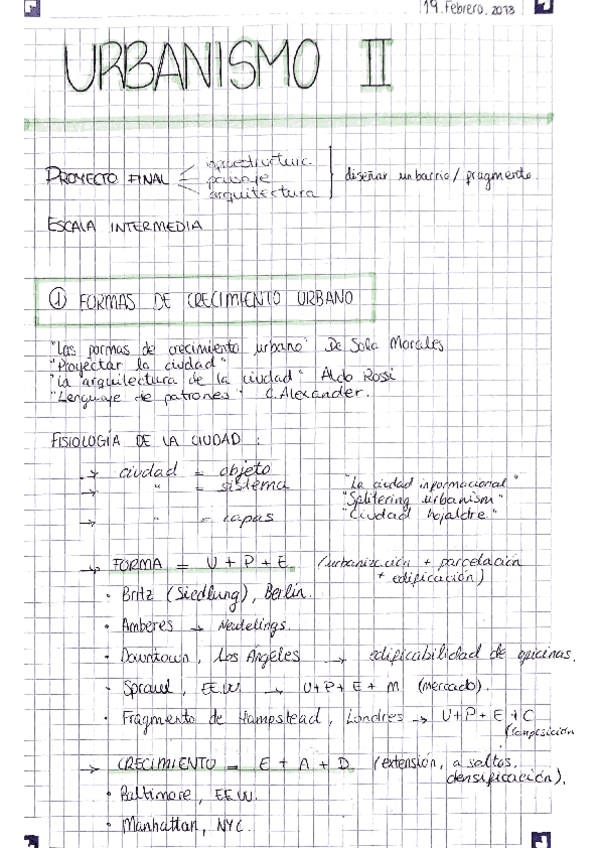 19. Febrero. 2013
URBANISMO II
infraestructura.
PROYECTO FINAL paisaje diseñar un barrio / fragmento.
arquitectura
ESCALA INTERMEDIA
① FORMAS DE CRECIMIENTO URBANO
"Las formas de crecimiento urbano" De Sola Morales
"Proyectar la ciudad"
"La arquitectura de la ciudad" Aldo Rosi
"Lenguaje de patrones" C. Alexander.
FISIOLOGÍA DE LA CIUDAD :
→ ciudad = objeto
→ " = sistema "La ciudad informacional"
"Splitering urbanism"
→ " = capas "Ciudad hojaldre"
→ FORMA = U + P + E. (urbanización + parcelación
+ edificación)
· Britz (Siedlung), Berlín.
· Amberes → Neutelings.
· Downtown, Los Ángeles → edificabilidad de oficinas.
· Sprawl, EE.UU. → U+P+E+M (mercado).
· Fragmento de Hampstead, Londres → U+P+E+C
(composición
→ CRECIMIENTO = E + A + D. (extensión, a saltos,
densificación).
· Baltimore, EE.UU.
· Manhattan, NYC.